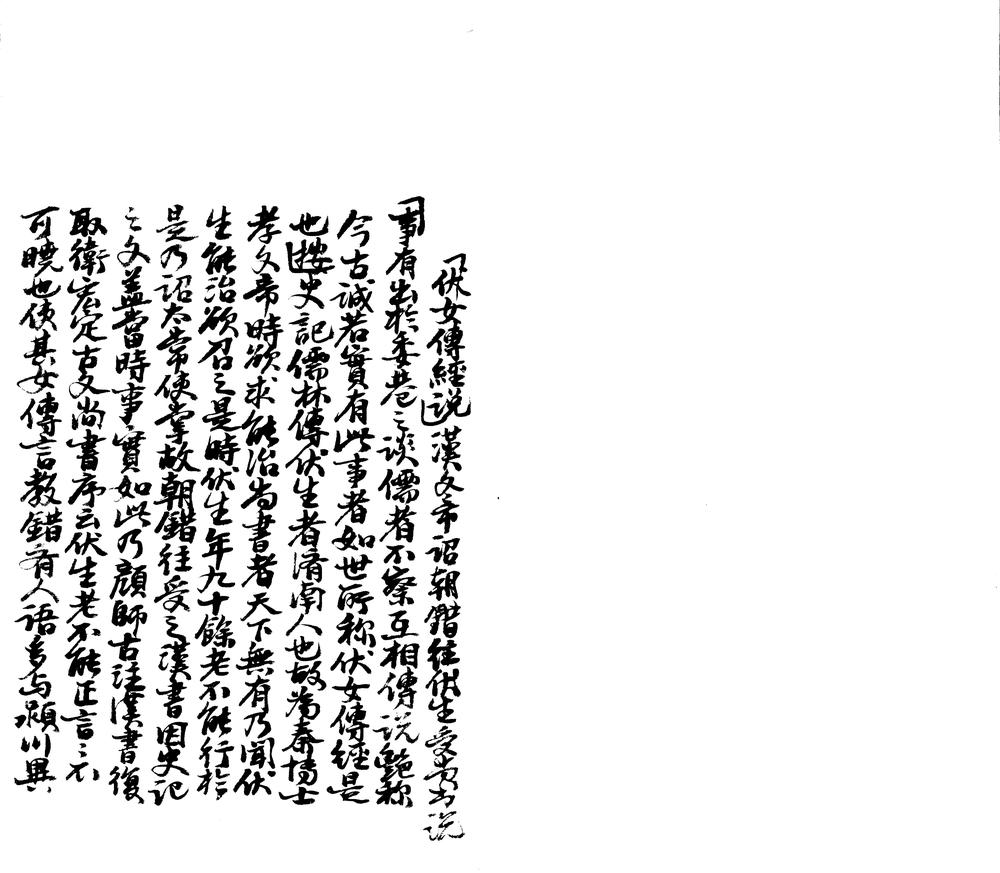 伏女傳經説漢文帝詔朝錯往伏生受尚書説
事有出於委巷之談儒者不察互相傳説艶称
今古誠若實有此事者如世所称伏女傳經是
也按史記儒林傳伏生者濟南人也故為秦博士
孝文帝時欲求能治尚書者天下無有乃聞伏
生能治欲召之是時伏生年九十餘老不能行於
是乃詔太常使掌故朝錯往受之漢書因史記
之文蓋當時事實如此乃顔師古注漢書復
取衛宏定古文尚書序云伏生老不能正言言不
可曉也使其女傳言教錯齊人語多与潁川異